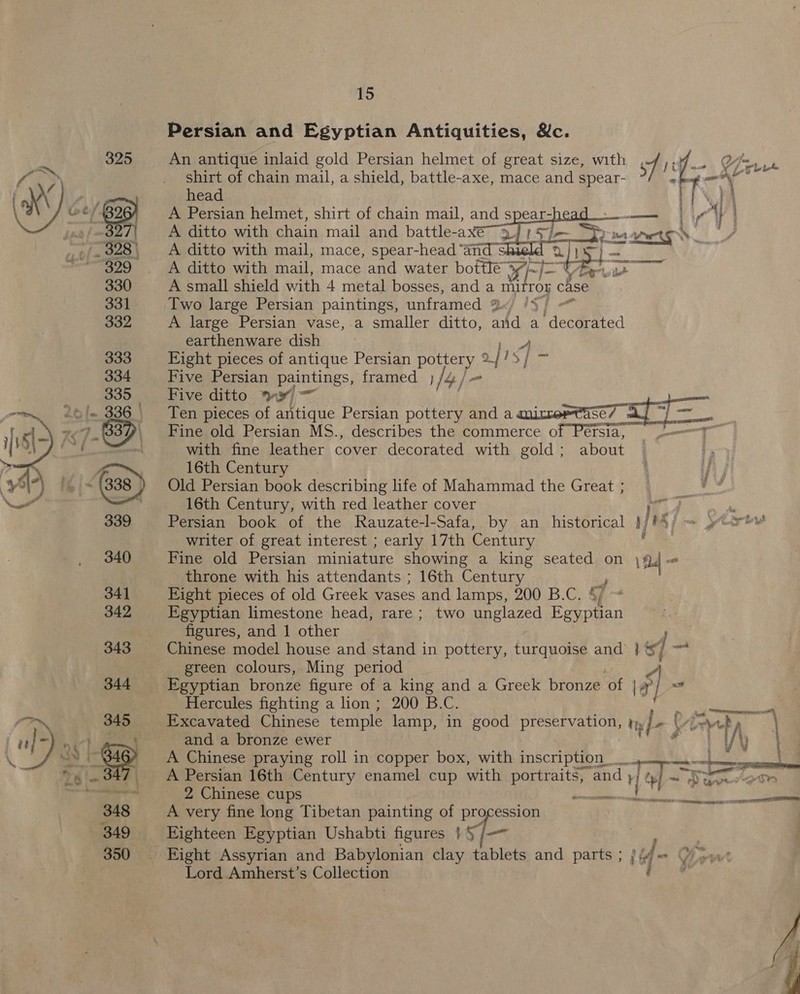 15
Persian and Egyptian Antiquities, &c.
325 An antique inlaid gold Persian helmet of great size, with
shirt of chain mail, a shield, battle-axe, mace and spear-
head
326 A Persian helmet, shirt of chain mail, and spear-head
327 A ditto with chain mail and battle-axe 2/15/-
328 A ditto with mail, mace, spear-head and shield
329 A ditto with mail, mace and water bottle
330 A small shield with 4 metal bosses, and a mirror case
331 Two large Persian paintings, unframed
332 A large Persian vase, a smaller ditto, and a decorated
earthenware dish
333 Eight pieces of antique Persian pottery 2/15/-
334 Five Persian paintings, framed 1/4/-
335 Five ditto
336 Ten pieces of antique Persian pottery and a mirror case
337 Fine old Persian MS., describes the commerce of Persia,
with fine leather cover decorated with gold; about
16th Century
338 Old Persian book describing life of Mahammad the Great;
16th Century, with red leather cover
339 Persian book of the Rauzate-l-Safa, by an historical
writer of great interest; early 17th Century
340 Fine old Persian miniature showing a king seated on
throne with his attendants; 16th Century
341 Eight pieces of old Greek vases and lamps, 200 B.C.
342 Egyptian limestone head, rare; two unglazed Egyptian
figures, and 1 other
343 Chinese model house and stand in pottery, turquoise and
green colours, Ming period
344 Egyptian bronze figure of a king and a Greek bronze of
Hercules fighting a lion; 200 B.C.
345 Excavated Chinese temple lamp, in good preservation,
and a bronze ewer
346 A Chinese praying roll in copper box, with inscription
347 A Persian 16th Century enamel cup with portraits, and
2 Chinese cups
348 A very fine long Tibetan painting of procession
349 Eighteen Egyptian Ushabti figures 15/-
350 Eight Assyrian and Babylonian clay tablets and parts;
Lord Amherst's Collection